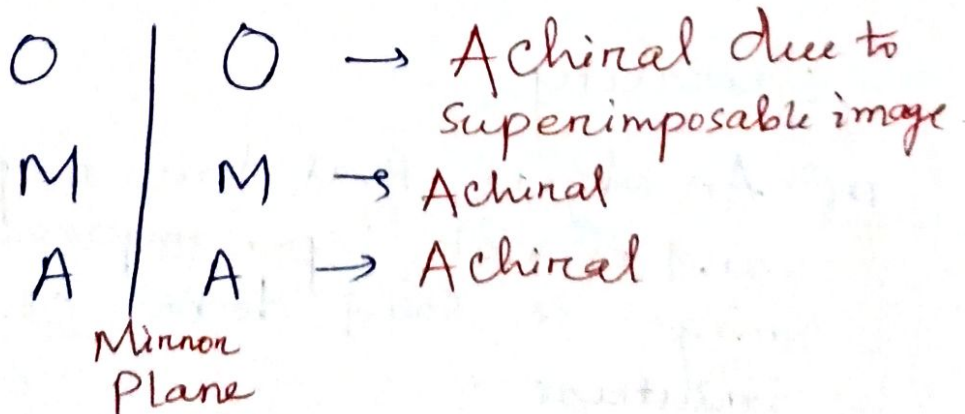 O | O → Achiral due to
superimposable image
M | M → Achiral
A | A → Achiral
Mirror
Plane